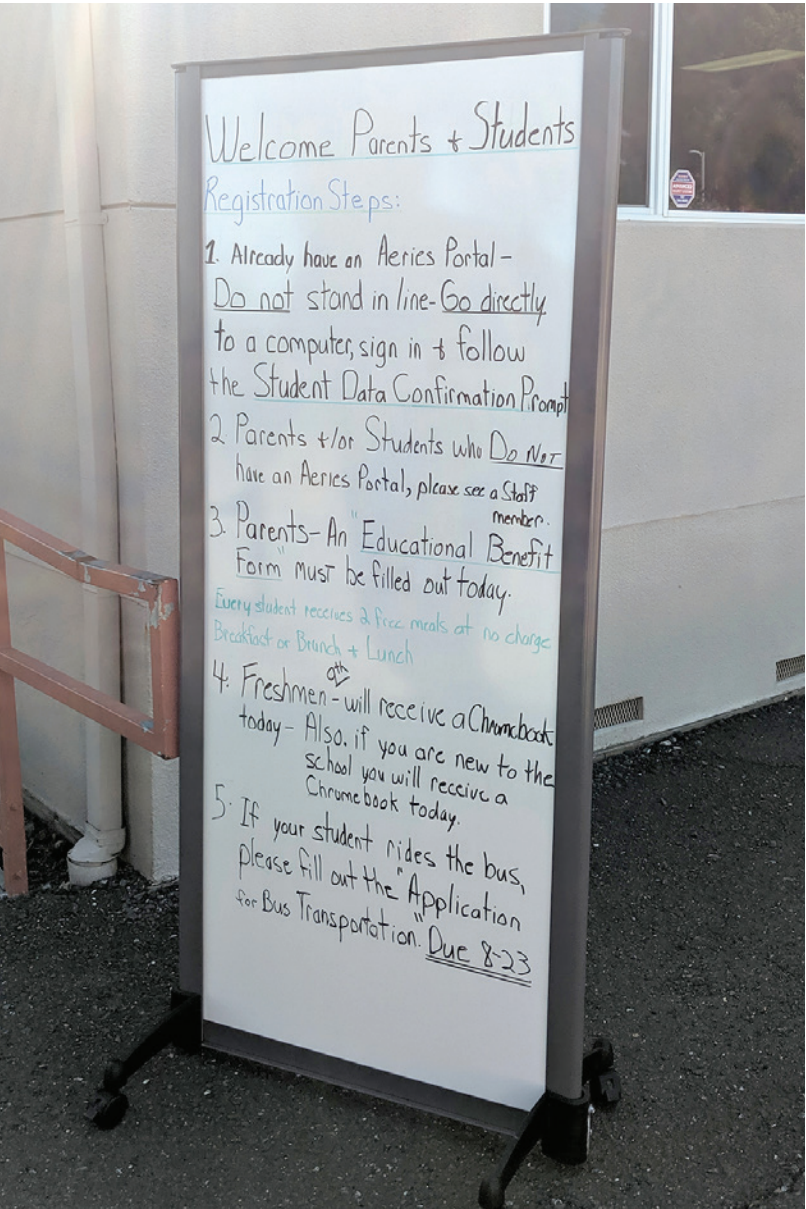 Welcome Parents & Students
Registration Steps:
1. Already have an Aeries Portal -
Do not stand in line - Go directly
to a computer, sign in & follow
the Student Data Confirmation Prompt
2 Parents &/or Students who Do Not
have an Aeries Portal, please see a Staff
member.
3. Parents - An "Educational Benefit
Form" must be filled out today.
Every student receives 2 free meals at no charge
Breakfast or Brunch & Lunch
9th
4. Freshmen - will receive a Chromebook
today - Also, if you are new to the
school you will receive a
Chromebook today.
5. If your student rides the bus,
please fill out the "Application
for Bus Transportation." Due 8-23